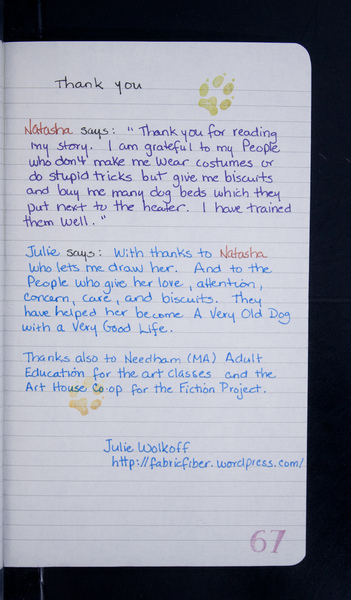 Thank you
Natasha says: "Thank you for reading
my story. I am grateful to my People
who don't make me wear costumes or
do stupid tricks but give me biscuits
and buy me many dog beds which they
put next to the heater. I have trained
them well."
Julie says: With thanks to Natasha
who lets me draw her. And to the
People who give her love, attention,
concern, care, and biscuits. They
have helped her become A Very Old Dog
with a Very Good Life.
Thanks also to Needham (MA) Adult
Education for the art classes and the
Art House Co-op for the Fiction Project.
Julie Wolkoff
http://fabricfiber.wordpress.com/
67